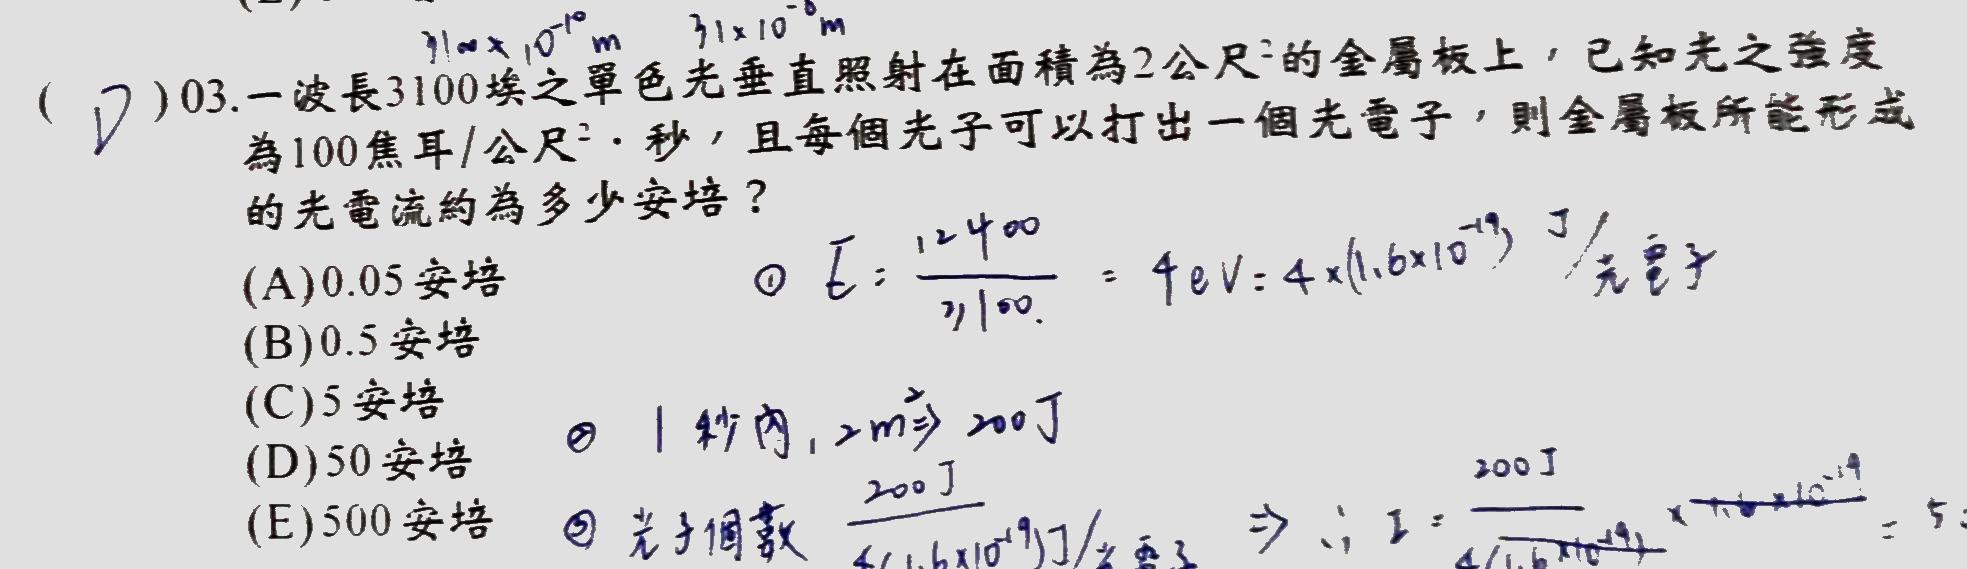 3100 × 10⁻¹⁰ m 31×10⁻⁸ m
( D ) 03.一波長3100埃之單色光垂直照射在面積為2公尺²的金屬板上，已知光之強度
為100焦耳/公尺²·秒，且每個光子可以打出一個光電子，則金屬板所能形成
的光電流約為多少安培？
(A)0.05安培
① E = 12400/3100. = 4eV = 4×(1.6×10⁻¹⁹) J/光電子
(B)0.5安培
(C)5安培
② 1秒內, 2m² ⇒ 200J
(D)50安培
(E)500安培
③ 光子個數 200J/4(1.6×10⁻¹⁹)J/光電子 ⇒ ∴ I = 200J/4(1.6×10⁻¹⁹) × 1.6×10⁻¹⁹ = 5